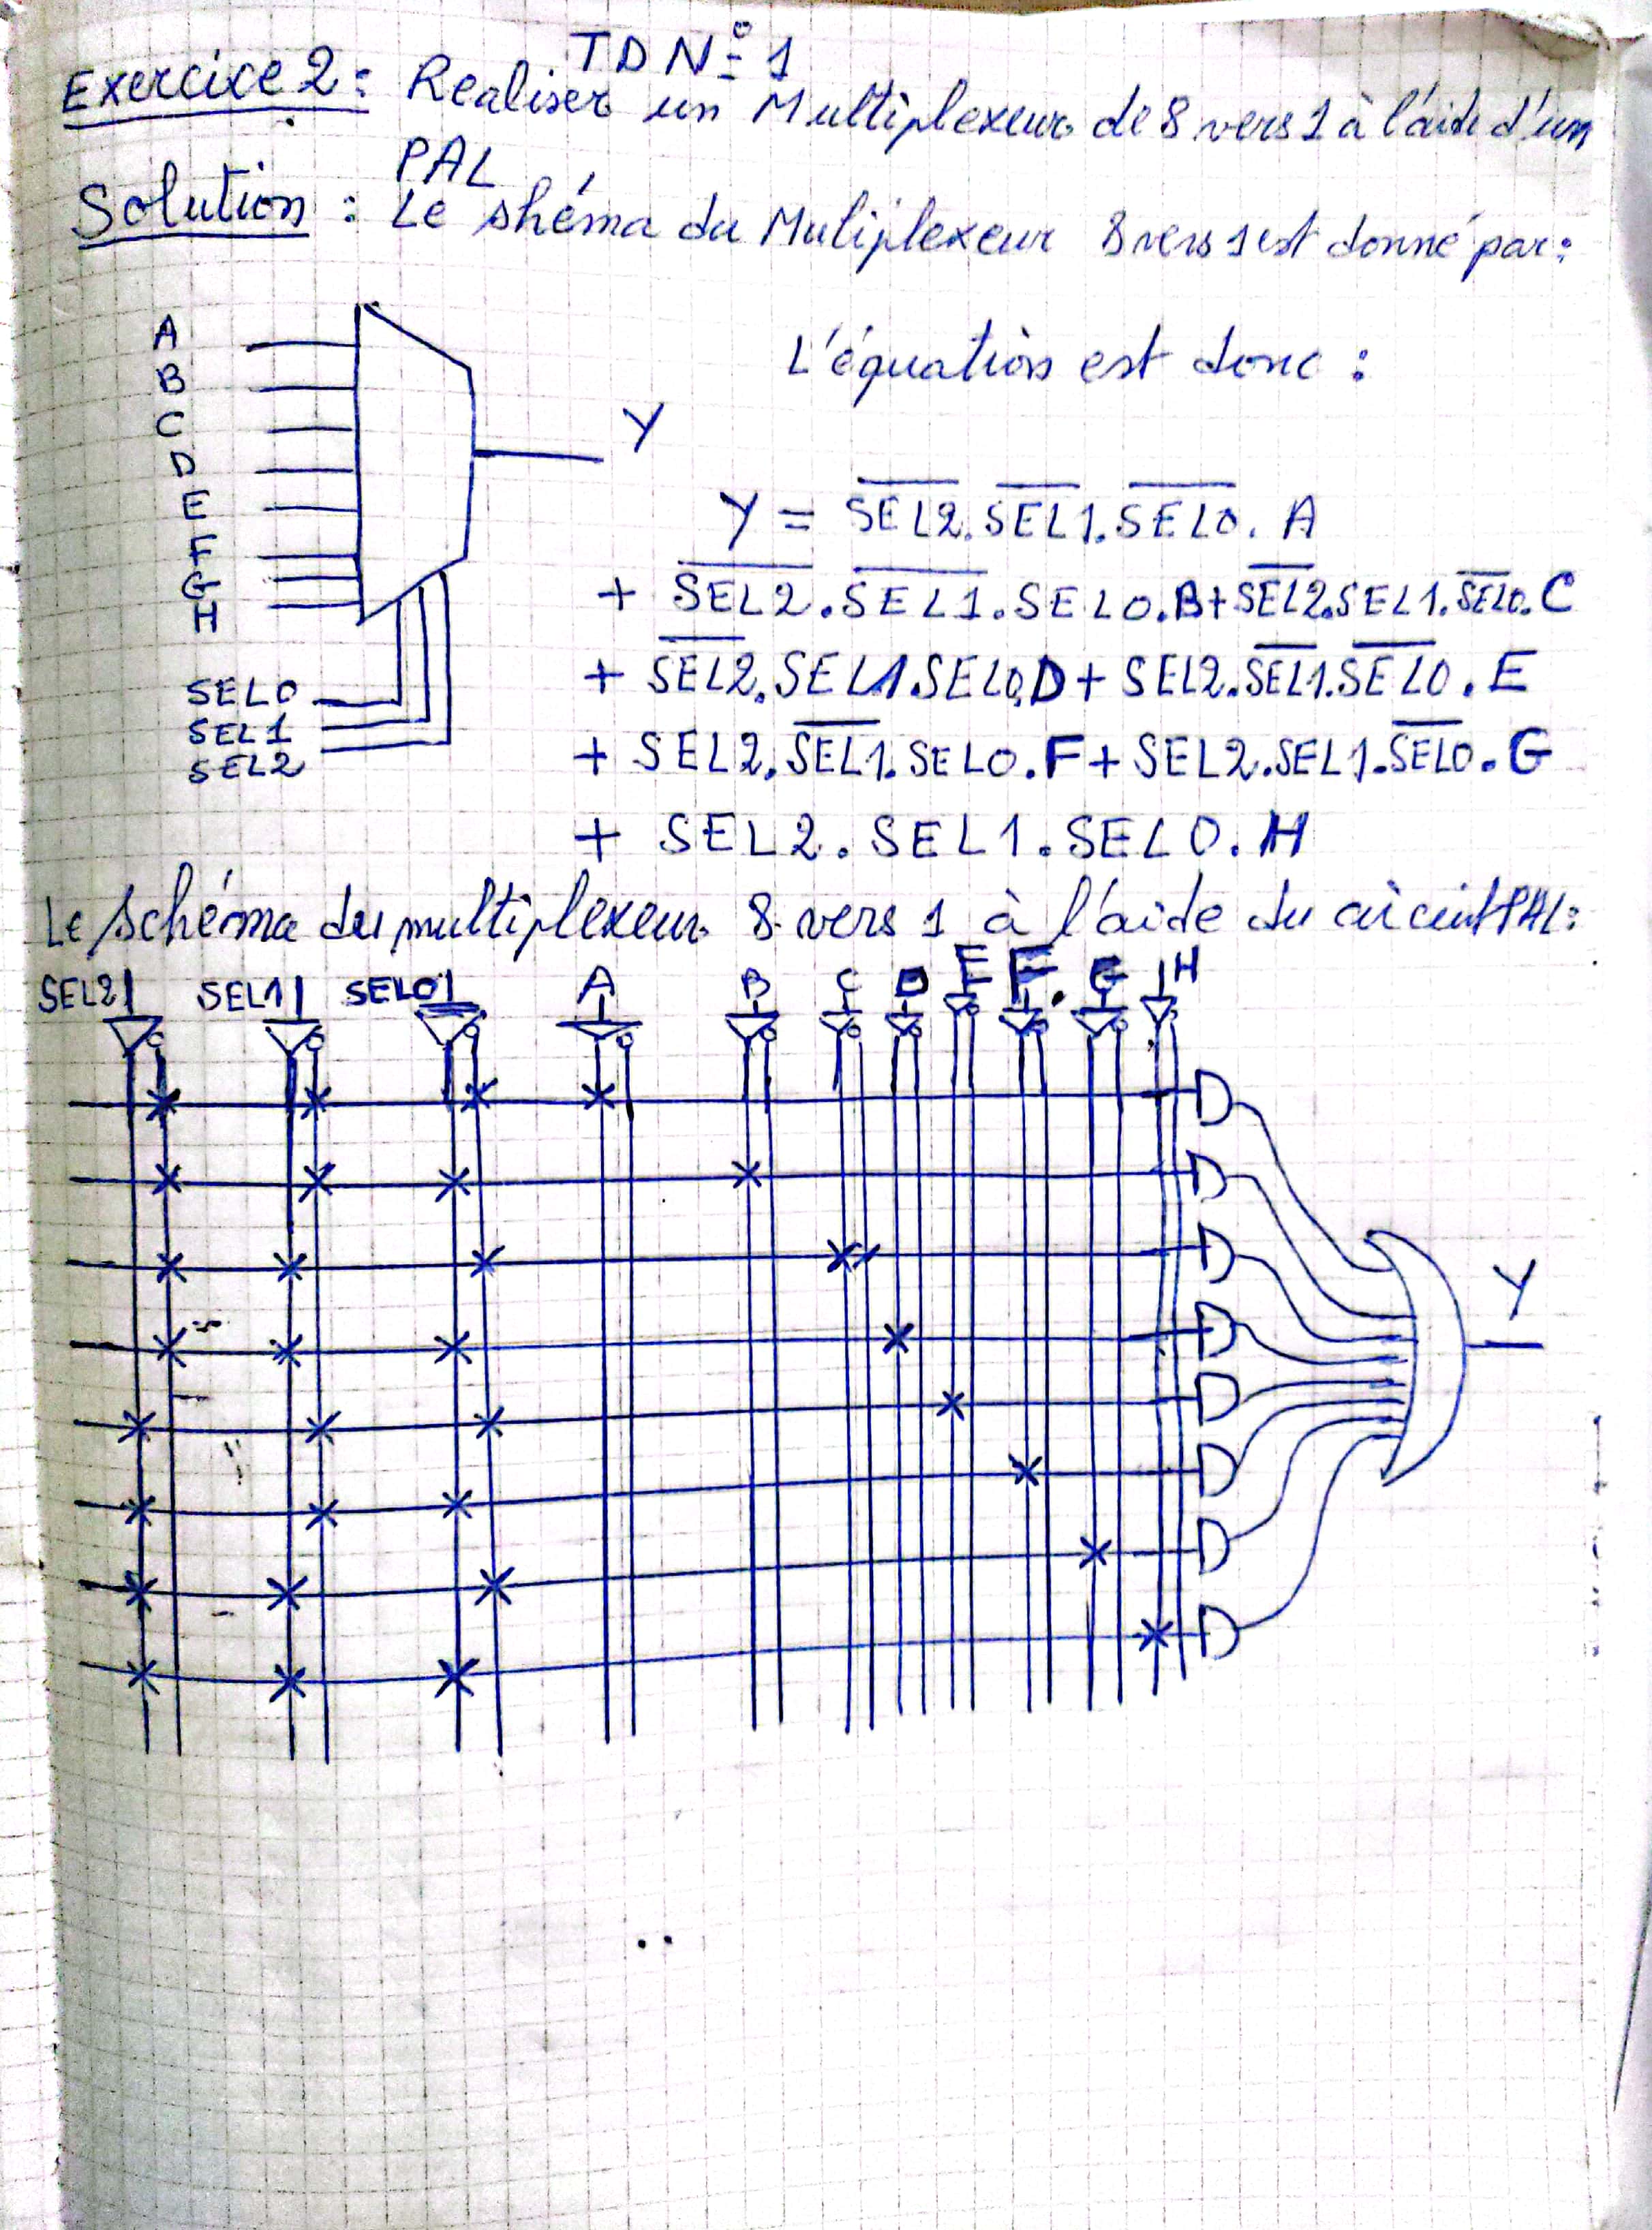 TD N° 1
Exercice 2 : Realiser un Multiplexeur de 8 vers 1 à l'aide d'un
PAL
Solution : Le shéma du Muliplexeur 8 vers 1 est donné par :
A
B
C
D
E
F
G
H
Y
SEL0
SEL1
SEL2
L'équation est donc :
Y = S̅E̅L̅2̅.S̅E̅L̅1̅.S̅E̅L̅0̅. A
+ S̅E̅L̅2̅.S̅E̅L̅1̅.SEL0.B+S̅E̅L̅2̅.SEL1.S̅E̅L̅0̅.C
+ S̅E̅L̅2̅.SEL1.SEL0.D+ SEL2.S̅E̅L̅1̅.S̅E̅L̅0̅.E
+ SEL2.S̅E̅L̅1̅.SEL0.F+ SEL2.SEL1.S̅E̅L̅0̅.G
+ SEL2.SEL1.SEL0.H
Le schéma du multiplexeur 8 vers 1 à l'aide du circuit PAL :
SEL2 SEL1 SEL0 A B C D E F G H
Y